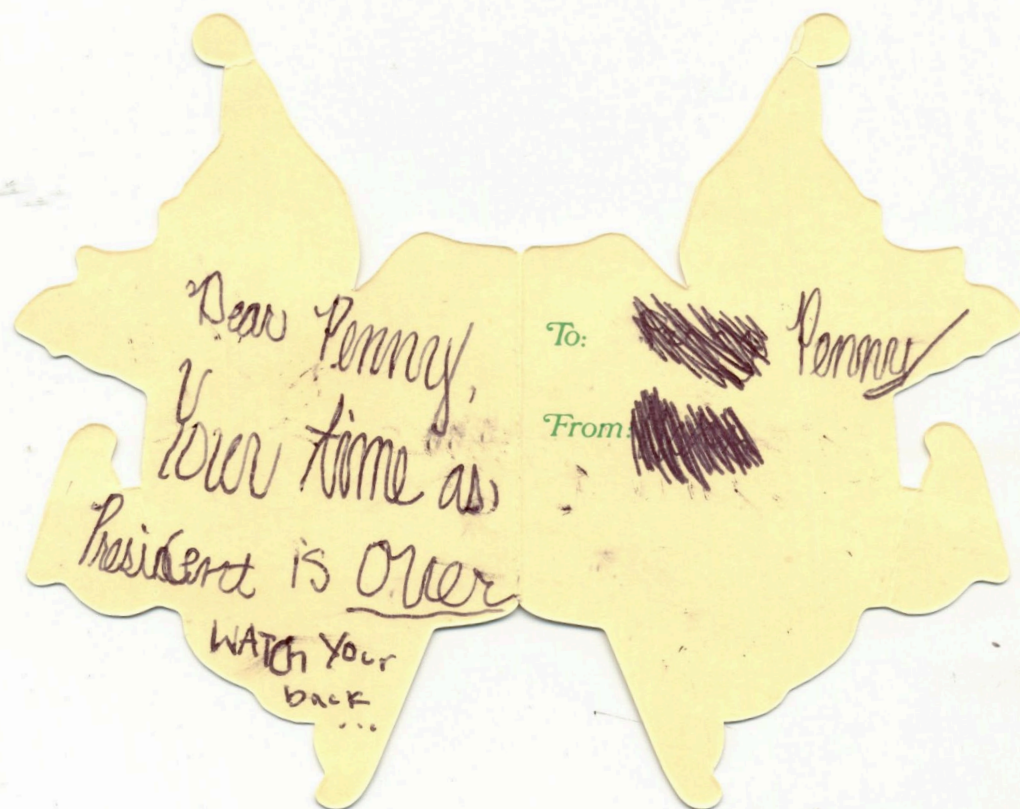 Dear Penny,
Your time as
President is Over
WATCh Your
back
...
To: Penny
From: